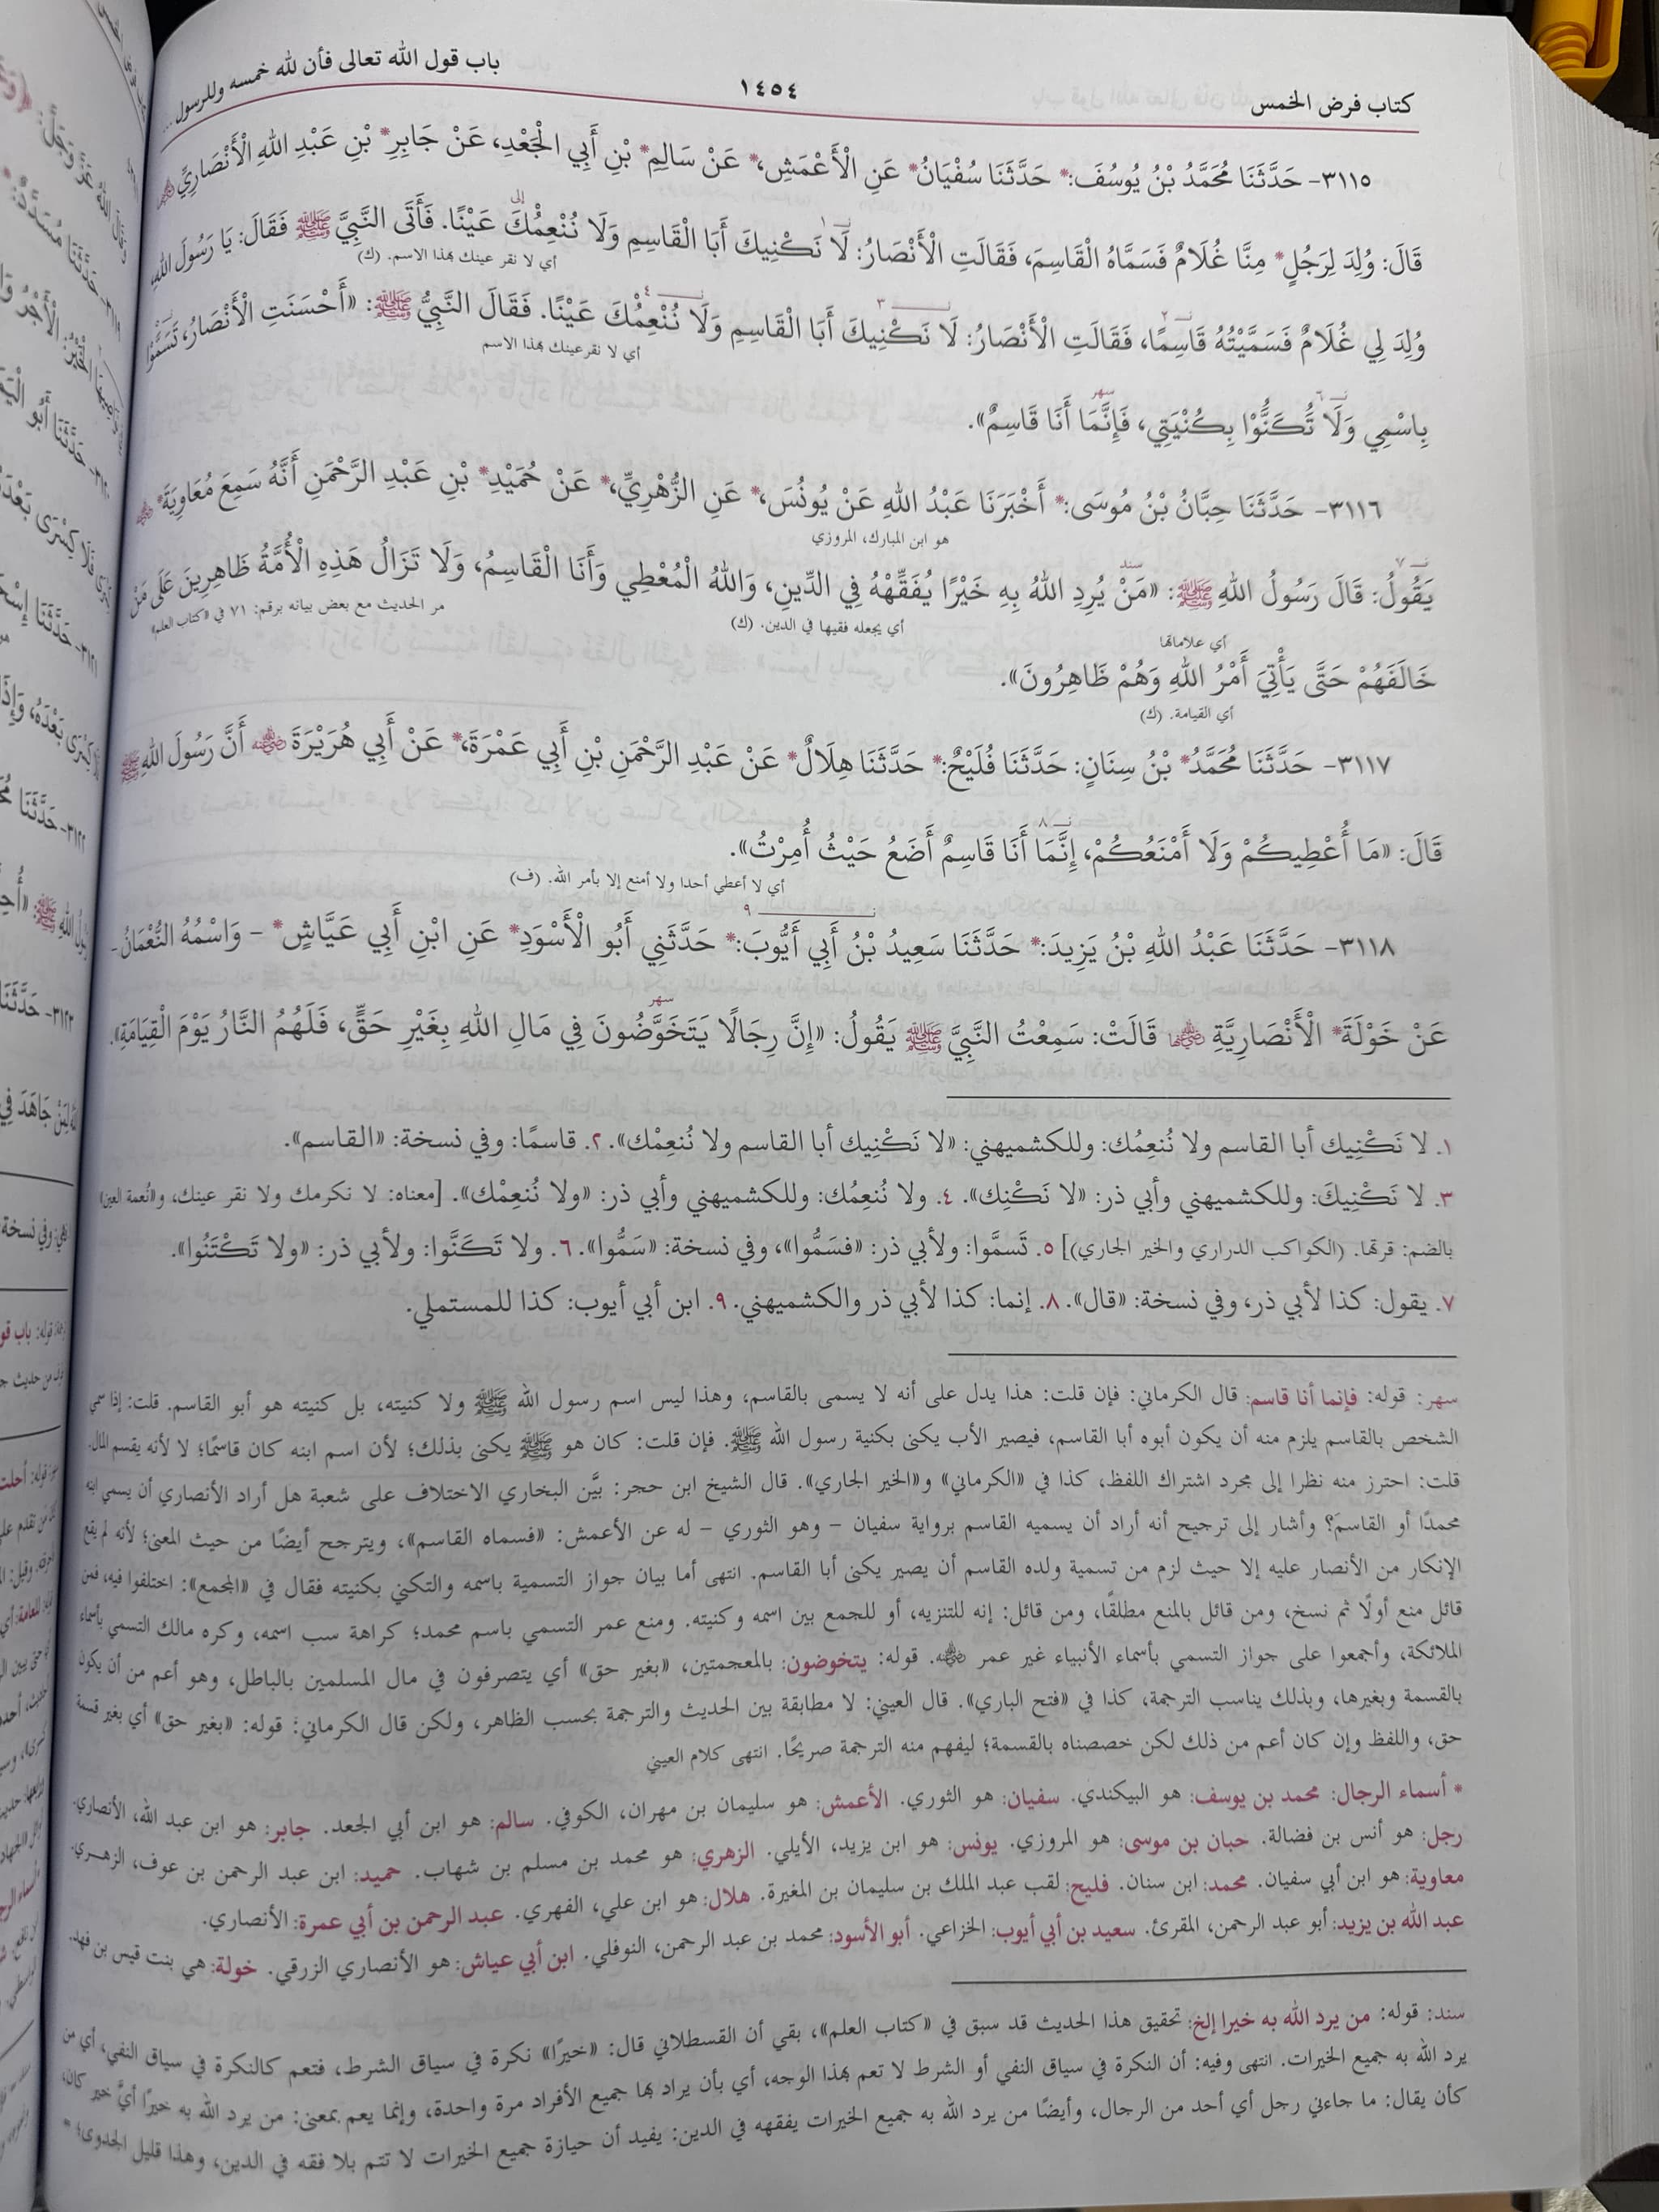 كتاب فرض الخمس
١٤٥٤
باب قول الله تعالى فأن لله خمسه وللرسول ...
٣١١٥- حَدَّثَنَا مُحَمَّدُ بْنُ يُوسُفَ:* حَدَّثَنَا سُفْيَانُ* عَنِ الْأَعْمَشِ،* عَنْ سَالِمِ* بْنِ أَبِي الْجَعْدِ، عَنْ جَابِرِ* بْنِ عَبْدِ اللهِ الْأَنْصَارِيِّ
قَالَ: وُلِدَ لِرَجُلٍ* مِنَّا غُلَامٌ فَسَمَّاهُ الْقَاسِمَ، فَقَالَتِ الْأَنْصَارُ: لَا نَكْنِيكَ أَبَا الْقَاسِمِ وَلَا نُنْعِمُكَ عَيْنًا. فَأَتَى النَّبِيَّ ﷺ فَقَالَ: يَا رَسُولَ اللهِ،
أي لا نقر عينك بهذا الاسم. (ك)
وُلِدَ لِي غُلَامٌ فَسَمَّيْتُهُ قَاسِمًا، فَقَالَتِ الْأَنْصَارُ: لَا نَكْنِيكَ أَبَا الْقَاسِمِ وَلَا نُنْعِمُكَ عَيْنًا. فَقَالَ النَّبِيُّ ﷺ: «أَحْسَنَتِ الْأَنْصَارُ، تَسَمَّوْا
أي لا نقرعينك بهذا الاسم
بِاسْمِي وَلَا تَكَنَّوْا بِكُنْيَتِي، فَإِنَّمَا أَنَا قَاسِمٌ».
٣١١٦- حَدَّثَنَا حِبَّانُ بْنُ مُوسَى:* أَخْبَرَنَا عَبْدُ اللهِ عَنْ يُونُسَ،* عَنِ الزُّهْرِيِّ،* عَنْ حُمَيْدِ* بْنِ عَبْدِ الرَّحْمَنِ أَنَّهُ سَمِعَ مُعَاوِيَةَ*
هو ابن المبارك، المروزي
يَقُولُ: قَالَ رَسُولُ اللهِ ﷺ: «مَنْ يُرِدِ اللهُ بِهِ خَيْرًا يُفَقِّهْهُ فِي الدِّينِ، وَاللهُ الْمُعْطِي وَأَنَا الْقَاسِمُ، وَلَا تَزَالُ هَذِهِ الْأُمَّةُ ظَاهِرِينَ عَلَى مَنْ
أي يجعله فقيها في الدين. (ك) مر الحديث مع بعض بيانه برقم: ٧١ في «كتاب العلم»
أي علاماتها
خَالَفَهُمْ حَتَّى يَأْتِيَ أَمْرُ اللهِ وَهُمْ ظَاهِرُونَ».
أي القيامة. (ك)
٣١١٧- حَدَّثَنَا مُحَمَّدُ* بْنُ سِنَانٍ: حَدَّثَنَا فُلَيْحٌ:* حَدَّثَنَا هِلَالٌ* عَنْ عَبْدِ الرَّحْمَنِ بْنِ أَبِي عَمْرَةَ،* عَنْ أَبِي هُرَيْرَةَ ؓ أَنَّ رَسُولَ اللهِ ﷺ
قَالَ: «مَا أُعْطِيكُمْ وَلَا أَمْنَعُكُمْ، إِنَّمَا أَنَا قَاسِمٌ أَضَعُ حَيْثُ أُمِرْتُ».
أي لا أعطي أحدا ولا أمنع إلا بأمر الله. (ف)
٣١١٨- حَدَّثَنَا عَبْدُ اللهِ بْنُ يَزِيدَ:* حَدَّثَنَا سَعِيدُ بْنُ أَبِي أَيُّوبَ:* حَدَّثَنِي أَبُو الْأَسْوَدِ* عَنِ ابْنِ أَبِي عَيَّاشٍ* – وَاسْمُهُ النُّعْمَانُ-
عَنْ خَوْلَةَ* الْأَنْصَارِيَّةِ ؓ قَالَتْ: سَمِعْتُ النَّبِيَّ ﷺ يَقُولُ: «إِنَّ رِجَالًا يَتَخَوَّضُونَ فِي مَالِ اللهِ بِغَيْرِ حَقٍّ، فَلَهُمُ النَّارُ يَوْمَ الْقِيَامَةِ».
١. لا نَكْنِيك أبا القاسم ولا نُنعِمُك: وللكشميهني: «لا نَكْنِيك أبا القاسم ولا نُنعِمْك». ٢. قاسمًا: وفي نسخة: «القاسم».
٣. لا نَكْنِيكَ: وللكشميهني وأبي ذر: «لا نَكْنِك». ٤. ولا نُنعِمُك: وللكشميهني وأبي ذر: «ولا نُنعِمْك». [معناه: لا نكرمك ولا نقر عينك، و«نُعمة العين»
بالضم: قرتها. (الكواكب الدراري والخير الجاري)] ٥. تَسمَّوا: ولأبي ذر: «فسَمُّوا»، وفي نسخة: «سَمُّوا». ٦. ولا تَكَنَّوا: ولأبي ذر: «ولا تَكْتَنُوا».
٧. يقول: كذا لأبي ذر، وفي نسخة: «قال». ٨. إنما: كذا لأبي ذر والكشميهني. ٩. ابن أبي أيوب: كذا للمستملي.
سهر: قوله: فإنما أنا قاسم: قال الكرماني: فإن قلت: هذا يدل على أنه لا يسمى بالقاسم، وهذا ليس اسم رسول الله ﷺ ولا كنيته، بل كنيته هو أبو القاسم. قلت: إذا سمي
الشخص بالقاسم يلزم منه أن يكون أبوه أبا القاسم، فيصير الأب يكنى بكنية رسول الله ﷺ. فإن قلت: كان هو ﷺ يكنى بذلك؛ لأن اسم ابنه كان قاسمًا؛ لا لأنه يقسم المال.
قلت: احترز منه نظرا إلى مجرد اشتراك اللفظ، كذا في «الكرماني» و«الخير الجاري». قال الشيخ ابن حجر: بيَّن البخاري الاختلاف على شعبة هل أراد الأنصاري أن يسمي ابنه
محمدًا أو القاسمَ؟ وأشار إلى ترجيح أنه أراد أن يسميه القاسم برواية سفيان – وهو الثوري – له عن الأعمش: «فسماه القاسم»، ويترجح أيضًا من حيث المعنى؛ لأنه لم يقع
الإنكار من الأنصار عليه إلا حيث لزم من تسمية ولده القاسم أن يصير يكنى أبا القاسم. انتهى أما بيان جواز التسمية باسمه والتكني بكنيته فقال في «المجمع»: اختلفوا فيه، فمن
قائل منع أولًا ثم نسخ، ومن قائل بالمنع مطلقًا، ومن قائل: إنه للتنزيه، أو للجمع بين اسمه وكنيته. ومنع عمر التسمي باسم محمد؛ كراهة سب اسمه، وكره مالك التسمي بأسماء
الملائكة، وأجمعوا على جواز التسمي بأسماء الأنبياء غير عمر ؓ. قوله: يتخوضون: بالمعجمتين، «بغير حق» أي يتصرفون في مال المسلمين بالباطل، وهو أعم من أن يكون
بالقسمة وبغيرها، وبذلك يناسب الترجمة، كذا في «فتح الباري». قال العيني: لا مطابقة بين الحديث والترجمة بحسب الظاهر، ولكن قال الكرماني: قوله: «بغير حق» أي بغير قسمة
حق، واللفظ وإن كان أعم من ذلك لكن خصصناه بالقسمة؛ ليفهم منه الترجمة صريحًا. انتهى كلام العيني
* أسماء الرجال: محمد بن يوسف: هو البيكندي. سفيان: هو الثوري. الأعمش: هو سليمان بن مهران، الكوفي. سالم: هو ابن أبي الجعد. جابر: هو ابن عبد الله، الأنصاري.
رجل: هو أنس بن فضالة. حبان بن موسى: هو المروزي. يونس: هو ابن يزيد، الأيلي. الزهري: هو محمد بن مسلم بن شهاب. حميد: ابن عبد الرحمن بن عوف، الزهري.
معاوية: هو ابن أبي سفيان. محمد: ابن سنان. فليح: لقب عبد الملك بن سليمان بن المغيرة. هلال: هو ابن علي، الفهري. عبد الرحمن بن أبي عمرة: الأنصاري.
عبد الله بن يزيد: أبو عبد الرحمن، المقرئ. سعيد بن أبي أيوب: الخزاعي. أبو الأسود: محمد بن عبد الرحمن، النوفلي. ابن أبي عياش: هو الأنصاري الزرقي. خولة: هي بنت قيس بن فهد.
سند: قوله: من يرد الله به خيرا إلخ: تحقيق هذا الحديث قد سبق في «كتاب العلم»، بقي أن القسطلاني قال: «خيرًا» نكرة في سياق الشرط، فتعم كالنكرة في سياق النفي، أي من
يرد الله به جميع الخيرات. انتهى وفيه: أن النكرة في سياق النفي أو الشرط لا تعم بهذا الوجه، أي بأن يراد بها جميع الأفراد مرة واحدة، وإنما يعم بمعنى: من يرد الله به خيرًا أيَّ خير كان،
كأن يقال: ما جاءني رجل أي أحد من الرجال، وأيضًا من يرد الله به جميع الخيرات يفقهه في الدين: يفيد أن حيازة جميع الخيرات لا تتم بلا فقه في الدين، وهذا قليل الجدوى؛ =